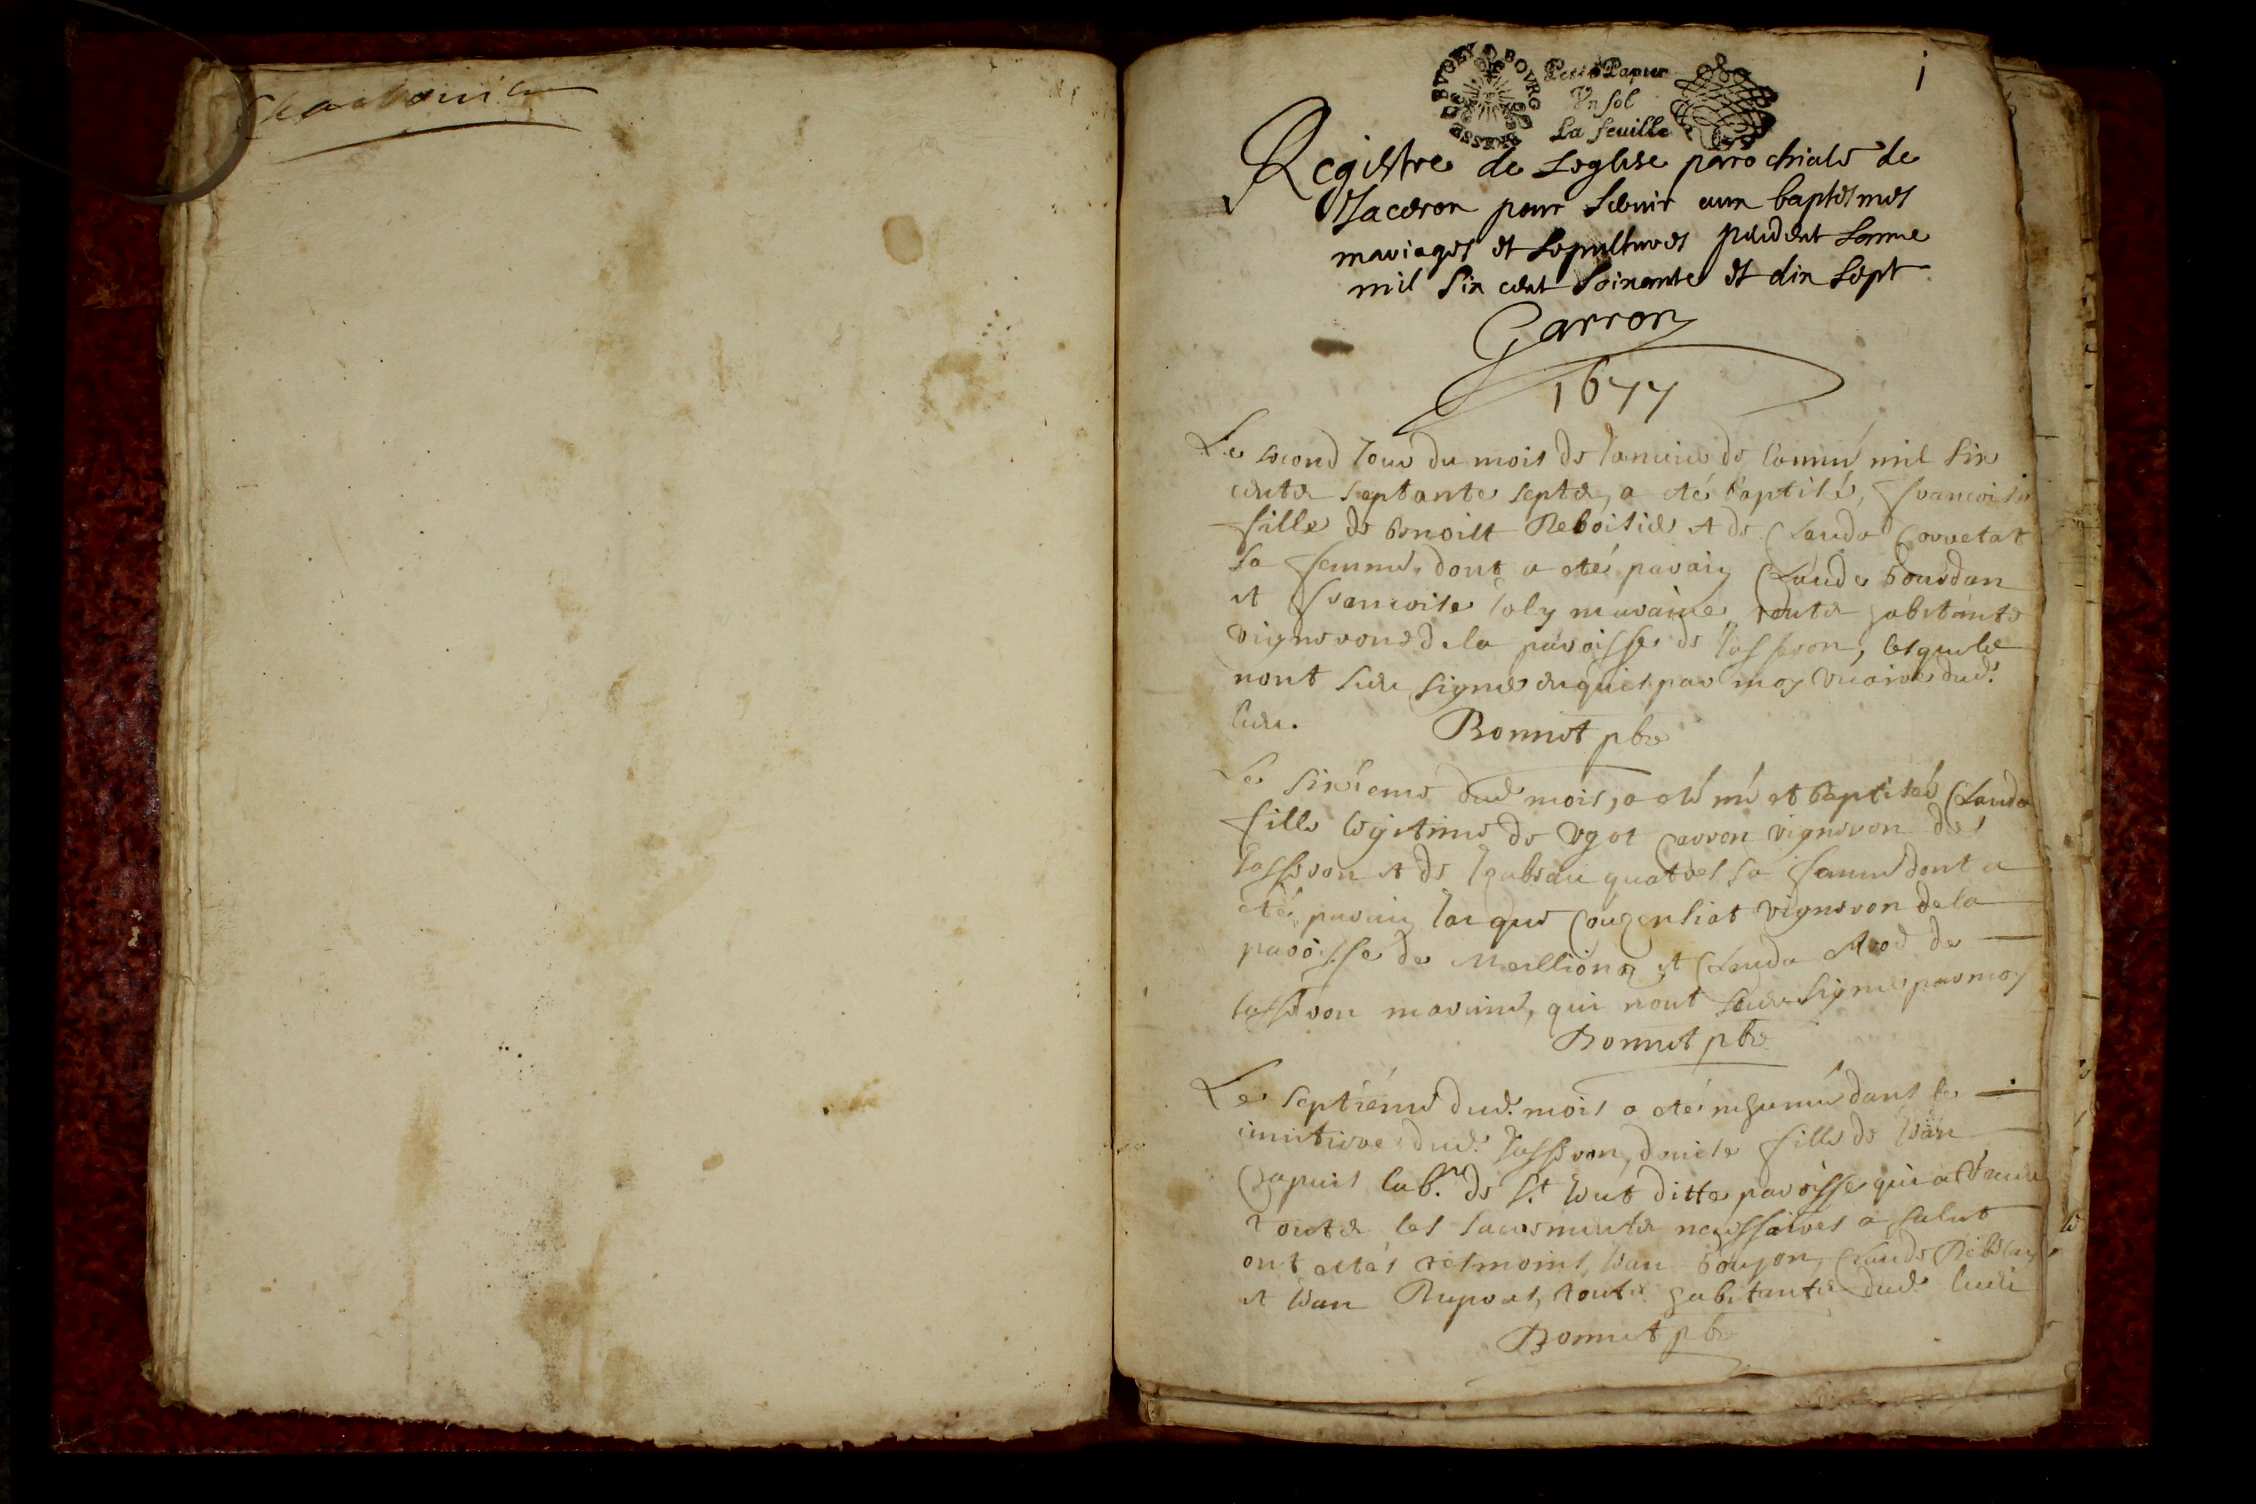 j
BRESSE BVGEY BOVRG
Petit Papier
Vn sol
La feuille
Registre de Leglise parrochiale de
Jaceron pour seruir aux baptesmes
mariages et sepultures pendent Lanne
mil six cent soixante et dix sept
Garron
1677
Le second iour du mois de Januier de lannee mil six
cents septante septs, a eté baptisé, francoise
fille de Benoist Reboisier et de Clauda Corretat
sa femme, dont a eté parain Claude bourdan
et francoise Joly maraine, touts habitants
vignerons de la paroisse de Jasseron, lesquels
nont sceu signer enquis par moy vicaire dud.
lieu. Bonnet pbre
Le sixieme dud mois, a eté né et baptisée Clauda
fille legitime de Vgot Carron vigneron de
Jasseron et de Isabeau sa femme dont a
eté parain Jacque vigneron de la
paroisse de Meillionn et Clauda de
Jasseron maraine, qui nont sceu signer par moy
Bonnet pbre
Le septieme dud. mois a eté inhumé dans le
cimetiere dud. Jasseron, denise fille de Jean
Chapuis lab.r de s.t ditte paroisse qui a
touts les sacrements necessaires a salut
ont estés tesmoins, Jean boujon, Claude
et Jean touts habitants dud lieu
Bonnet pbre